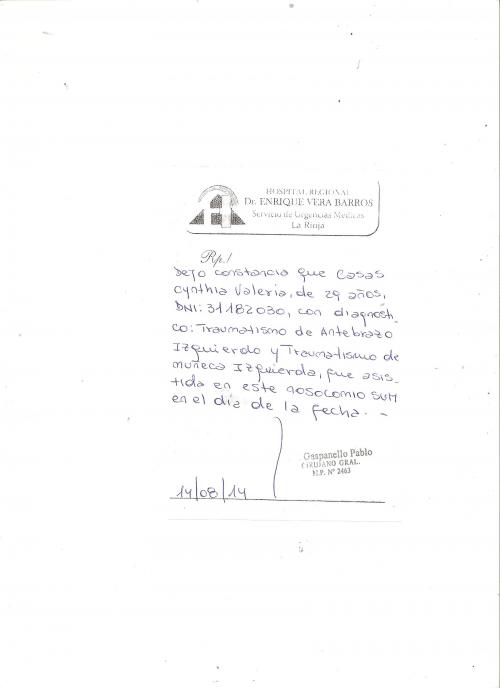 HOSPITAL REGIONAL
Dr. ENRIQUE VERA BARROS
Servicio de Urgencias Médicas
La Rioja
Rp./
Dejo constancia que Casas
Cynthia Valeria, de 29 años,
DNI: 31182030, con diagnósti-
co: Traumatismo de Antebrazo
Izquierdo y Traumatismo de
muñeca Izquierda, fue asis-
tida en este nosocomio SUM
en el día de la fecha. -
Gaspanello Pablo
CIRUJANO GRAL.
M.P. Nº 2463
14/08/14